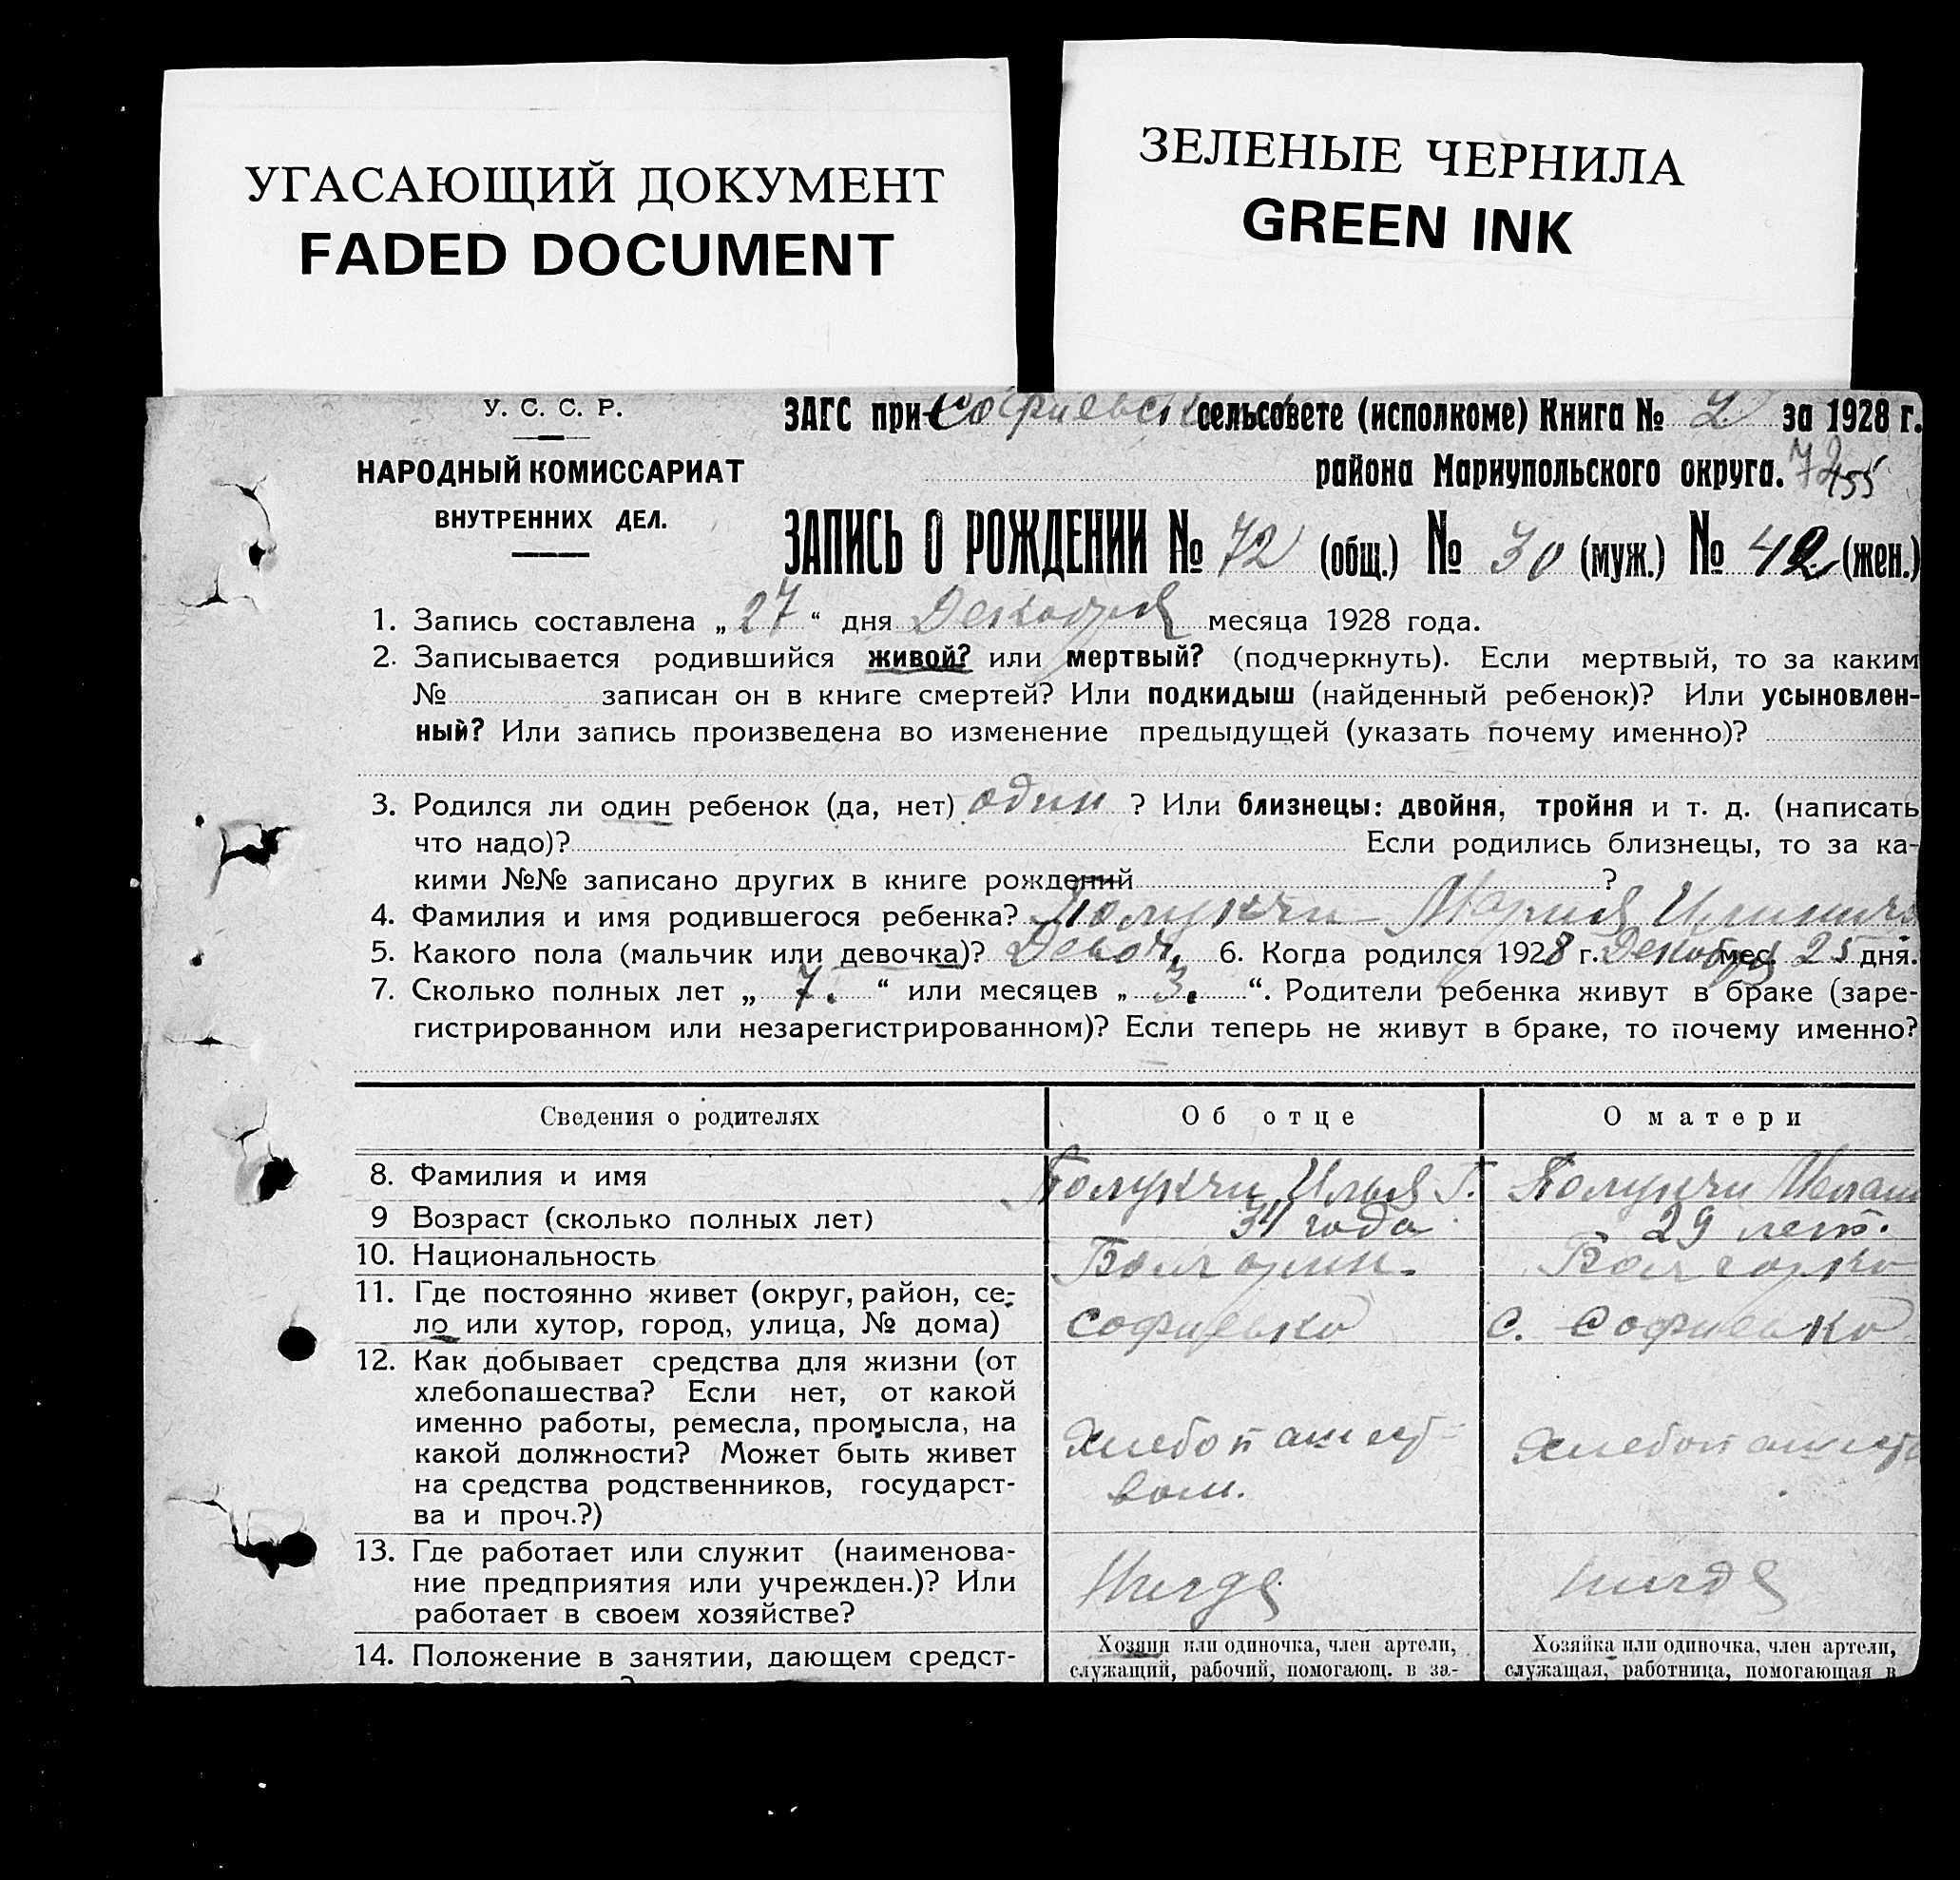 УГАСАЮЩИЙ ДОКУМЕНТ
FADED DOCUMENT
ЗЕЛЕНЫЕ ЧЕРНИЛА
GREEN INK
У. С. С. Р.
НАРОДНЫЙ КОМИССАРИАТ
ВНУТРЕННИХ ДЕЛ.
ЗАГС при Софиевском сельсовете (исполкоме) Книга № 2 за 1928 г.
района Мариупольского округа. 72
455
ЗАПИСЬ О РОЖДЕНИИ № 72 (общ.) № 30 (муж.) № 42 (жен.)
1. Запись составлена „27“ дня Декабря месяца 1928 года.
2. Записывается родившийся живой? или мертвый? (подчеркнуть). Если мертвый, то за каким
№ записан он в книге смертей? Или подкидыш (найденный ребенок)? Или усыновлен-
ный? Или запись произведена во изменение предыдущей (указать почему именно)?
3. Родился ли один ребенок (да, нет) один ? Или близнецы: двойня, тройня и т. д. (написать
что надо)? Если родились близнецы, то за ка-
кими №№ записано других в книге рождений ?
4. Фамилия и имя родившегося ребенка? Полукчи Мария
5. Какого пола (мальчик или девочка)? Девоч. 6. Когда родился 1928 г. Декабря мес. 25 дня.
7. Сколько полных лет „ 7. “ или месяцев „ 3. “. Родители ребенка живут в браке (заре-
гистрированном или незарегистрированном)? Если теперь не живут в браке, то почему именно?
Сведения о родителях
Об отце
О матери
8. Фамилия и имя
Полукчи Илья Г.
Полукчи
9 Возраст (сколько полных лет)
34 года
29 лет.
10. Национальность
Болгарин.
Болгарка
11. Где постоянно живет (округ, район, се-
ло или хутор, город, улица, № дома)
Софиевка
с. Софиевка
12. Как добывает средства для жизни (от
хлебопашества? Если нет, от какой
именно работы, ремесла, промысла, на
какой должности? Может быть живет
на средства родственников, государст-
ва и проч.?)
Хлебопашест-
вом.
Хлебопашеств
13. Где работает или служит (наименова-
ние предприятия или учрежден.)? Или
работает в своем хозяйстве?
Нигде
нигде
14. Положение в занятии, дающем средст-
Хозяин или одиночка, член артели,
служащий, рабочий, помогающ. в за-
Хозяйка или одиночка, член артели,
служащая, работница, помогающая в